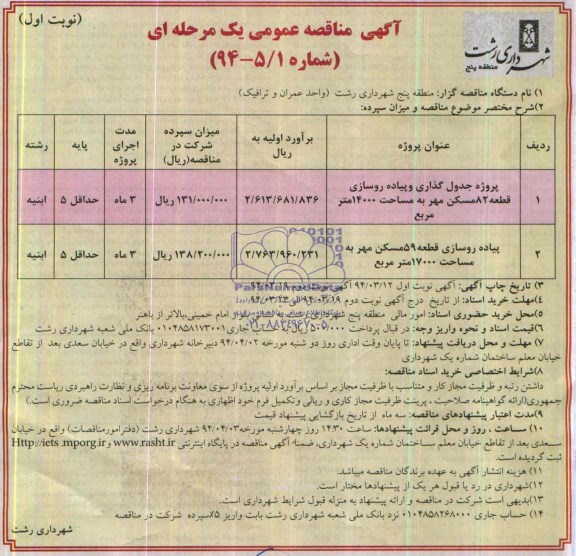 (نوبت اول)
آگهی مناقصه عمومی یک مرحله ای
(شماره ۵/۱-۹۴)
شهرداری رشت
منطقه پنج
۱) نام دستگاه مناقصه گزار: منطقه پنج شهرداری رشت (واحد عمران و ترافیک)
۲)شرح مختصر موضوع مناقصه و میزان سپرده:
ردیف عنوان پروژه برآورد اولیه به ریال میزان سپرده شرکت در مناقصه(ریال) مدت اجرای پروژه پایه رشته
۱ پروژه جدول گذاری وپیاده روسازی قطعه۸۲مسکن مهر به مساحت ۱۴۰۰۰متر مربع ۲/۶۱۳/۶۸۱/۸۳۶ ۱۳۱/۰۰۰/۰۰۰ ریال ۳ ماه حداقل ۵ ابنیه
۲ پیاده روسازی قطعه۵۹مسکن مهر به مساحت ۱۷۰۰۰متر مربع ۲/۷۶۳/۹۶۰/۲۳۱ ۱۳۸/۲۰۰/۰۰۰ ریال ۳ ماه حداقل ۵ ابنیه
۳) تاریخ چاپ آگهی: آگهی نوبت اول ۹۴/۰۳/۱۲ آگهی نوبت دوم ۹۴/۰۳/۱۹
۴)مهلت خرید اسناد: از تاریخ درج آگهی نوبت دوم ۹۴/۰۳/۱۹ الی ۹۴/۰۳/۲۳
۵)محل خرید حضوری اسناد: امور مالی منطقه پنج شهرداری رشت به آدرس بلوار امام خمینی،بالاتر از باهنر
۶)قیمت اسناد و نحوه واریز وجه: در قبال پرداخت ۵۰۰/۰۰۰ ریال به حساب جاری ۰۱۰۴۸۵۸۱۷۳۰۰۱ بانک ملی شعبه شهرداری رشت
۷) مهلت و محل دریافت پیشنهاد: تا پایان وقت اداری روز دو شنبه مورخه ۹۴/۰۴/۰۲ دبیرخانه شهرداری واقع در خیابان سعدی بعد از تقاطع
خیابان معلم ساختمان شماره یک شهرداری
۸)شرایط اختصاصی خرید اسناد مناقصه:
داشتن رتبه و ظرفیت مجاز کار و متناسب با ظرفیت مجاز بر اساس برآورد اولیه پروژه از سوی معاونت برنامه ریزی و نظارت راهبردی ریاست محترم
جمهوری(ارائه گواهینامه صلاحیت ، پرینت ظرفیت مجاز کاری و ریالی وتکمیل فرم خود اظهاری به هنگام درخواست اسناد مناقصه ضروری است.)
۹)مدت اعتبار پیشنهادهای مناقصه: سه ماه از تاریخ بازگشایی پیشنهاد قیمت
۱۰) ساعت ، روز و محل قرائت پیشنهادها: ساعت ۱۴:۳۰ روز چهارشنبه مورخه۹۴/۰۴/۰۳ شهرداری رشت (دفترامورمناقصات) واقع در خیابان
سعدی بعد از تقاطع خیابان معلم ساختمان شماره یک شهرداری، ضمنا آگهی مناقصه در پایگاه اینترنتی www.rasht.ir و Http://iets .mporg.ir
ثبت گردیده است.
۱۱) هزینه انتشار آگهی به عهده برندگان مناقصه میباشد.
۱۲)شهرداری در رد یا قبول هر یک از پیشنهادها مختار است.
۱۳)بدیهی است شرکت در مناقصه و ارائه پیشنهاد به منزله قبول شرایط شهرداری است.
۱۴) حساب جاری ۰۱۰۴۸۵۸۲۶۸۰۰۰ نزد بانک ملی شعبه شهرداری رشت بابت واریز ۵٪سپرده شرکت در مناقصه
شهرداری رشت